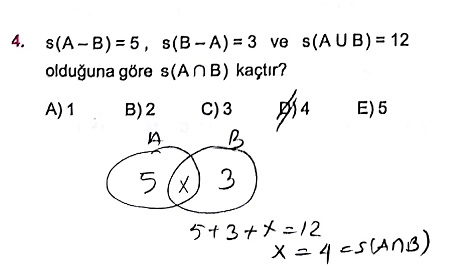 4. s(A – B) = 5 , s(B – A) = 3 ve s(A U B) = 12
olduğuna göre s(A ∩ B) kaçtır?
A) 1 B) 2 C) 3 D) 4 E) 5
A B
5 x 3
5 + 3 + x = 12
x = 4 = s(A∩B)